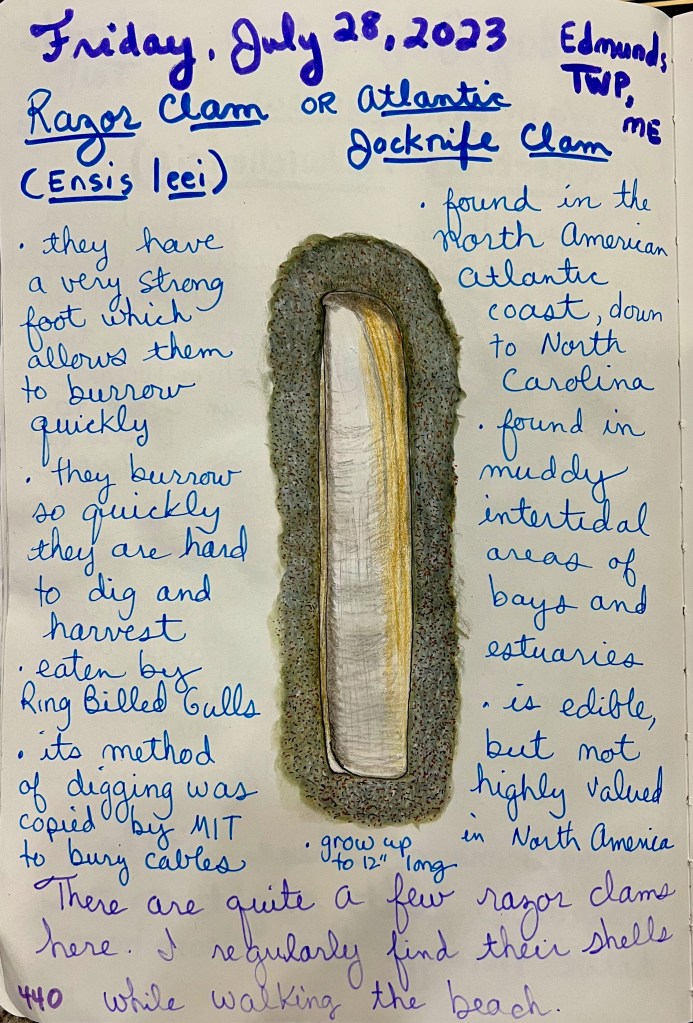 Friday, July 28, 2023
Edmunds,
TWP,
ME
Razor Clam OR Atlantic
Jacknife Clam
(Ensis leei)
· they have
a very strong
foot which
allows them
to burrow
quickly
· they burrow
so quickly
they are hard
to dig and
harvest
· eaten by
Ring Billed Gulls
· its method
of digging was
copied by MIT
to bury cables
· found in the
North American
Atlantic
coast, down
to North
Carolina
· found in
muddy
intertidal
areas of
bays and
estuaries
· is edible,
but not
highly valued
in North America
· grow up
to 12" long
There are quite a few razor clams
here. I regularly find their shells
while walking the beach.
440